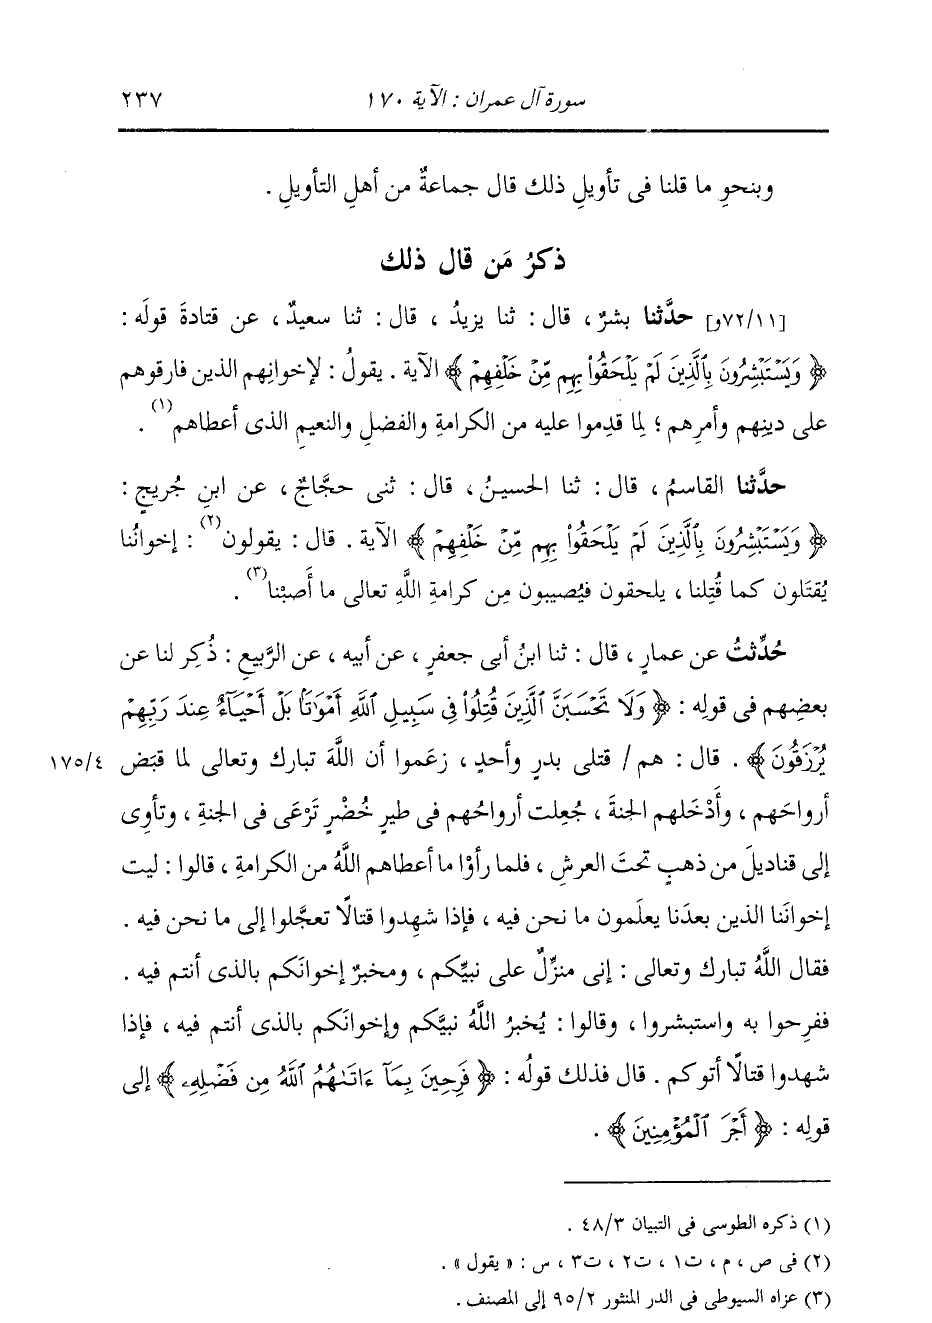 سورة آل عمران : الآية ١٧٠
٢٣٧
وبنحوِ ما قلنا فى تأويلِ ذلك قال جماعةٌ من أهلِ التأويلِ .
ذكرُ مَن قال ذلك
[٧٢/١١و] حدَّثنا بشرٌ ، قال : ثنا يزيدُ ، قال : ثنا سعيدٌ ، عن قتادةَ قولَه :
﴿ وَيَسْتَبْشِرُونَ بِٱلَّذِينَ لَمْ يَلْحَقُوا۟ بِهِم مِّنْ خَلْفِهِمْ ﴾ الآية . يقولُ : لإخوانِهم الذين فارقوهم
على دينِهم وأمرِهم ؛ لِما قدِموا عليه من الكرامةِ والفضلِ والنعيمِ الذى أعطاهم(١) .
حدَّثنا القاسمُ ، قال : ثنا الحسينُ ، قال : ثنى حجَّاجٌ ، عن ابنِ جُريجٍ :
﴿ وَيَسْتَبْشِرُونَ بِٱلَّذِينَ لَمْ يَلْحَقُوا۟ بِهِم مِّنْ خَلْفِهِمْ ﴾ الآية . قال : يقولون(٢) : إخوانُنا
يُقتَلون كما قُتِلنا ، يلحقون فيُصيبون مِن كرامةِ اللَّهِ تعالى ما أَصبْنا(٣) .
حُدِّثتُ عن عمارٍ ، قال : ثنا ابنُ أبى جعفرٍ ، عن أبيه ، عن الرَّبيعِ : ذُكِر لنا عن
بعضِهم فى قولِه : ﴿ وَلَا تَحْسَبَنَّ ٱلَّذِينَ قُتِلُوا۟ فِى سَبِيلِ ٱللَّهِ أَمْوَٰتًۢا بَلْ أَحْيَآءٌ عِندَ رَبِّهِمْ
يُرْزَقُونَ ﴾ . قال : هم / قتلى بدرٍ وأحدٍ ، زعَموا أن اللَّهَ تبارك وتعالى لما قبَض ١٧٥/٤
أرواحَهم ، وأَدْخَلهم الجنةَ ، جُعِلت أرواحُهم فى طيرٍ خُضْرٍ تَرْعَى فى الجنةِ ، وتأوِى
إلى قناديلَ من ذهبٍ تحتَ العرشِ ، فلما رأوْا ما أعطاهم اللَّهُ من الكرامةِ ، قالوا : ليت
إخوانَنا الذين بعدَنا يعلَمون ما نحن فيه ، فإذا شهِدوا قتالًا تعجَّلوا إلى ما نحن فيه .
فقال اللَّهُ تبارك وتعالى : إنى منزِّلٌ على نبيِّكم ، ومخبرٌ إخوانَكم بالذى أنتم فيه .
ففرِحوا به واستبشروا ، وقالوا : يُخبرُ اللَّهُ نبيَّكم وإخوانَكم بالذى أنتم فيه ، فإذا
شهدوا قتالًا أتوكم . قال فذلك قولُه : ﴿ فَرِحِينَ بِمَآ ءَاتَىٰهُمُ ٱللَّهُ مِن فَضْلِهِۦ ﴾ إلى
قولِه : ﴿ أَجْرَ ٱلْمُؤْمِنِينَ ﴾ .
(١) ذكره الطوسى فى التبيان ٤٨/٣ .
(٢) فى ص ، م ، ت١ ، ت٢ ، ت٣ ، س : « يقول » .
(٣) عزاه السيوطى فى الدر المنثور ٩٥/٢ إلى المصنف .